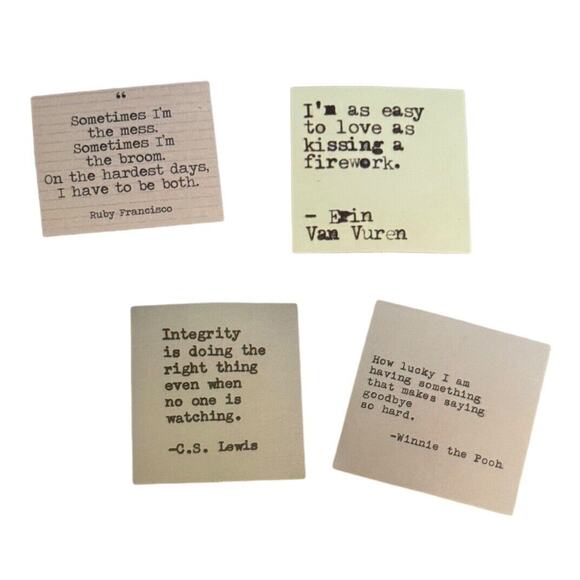 “
Sometimes I'm
the mess.
Sometimes I'm
the broom.
On the hardest days,
I have to be both.
Ruby Francisco
I'm as easy
to love as
kissing a
firework.
- Erin
Van Vuren
Integrity
is doing the
right thing
even when
no one is
watching.
-C.S. Lewis
How lucky I am
having something
that makes saying
goodbye
so hard.
-Winnie the Pooh